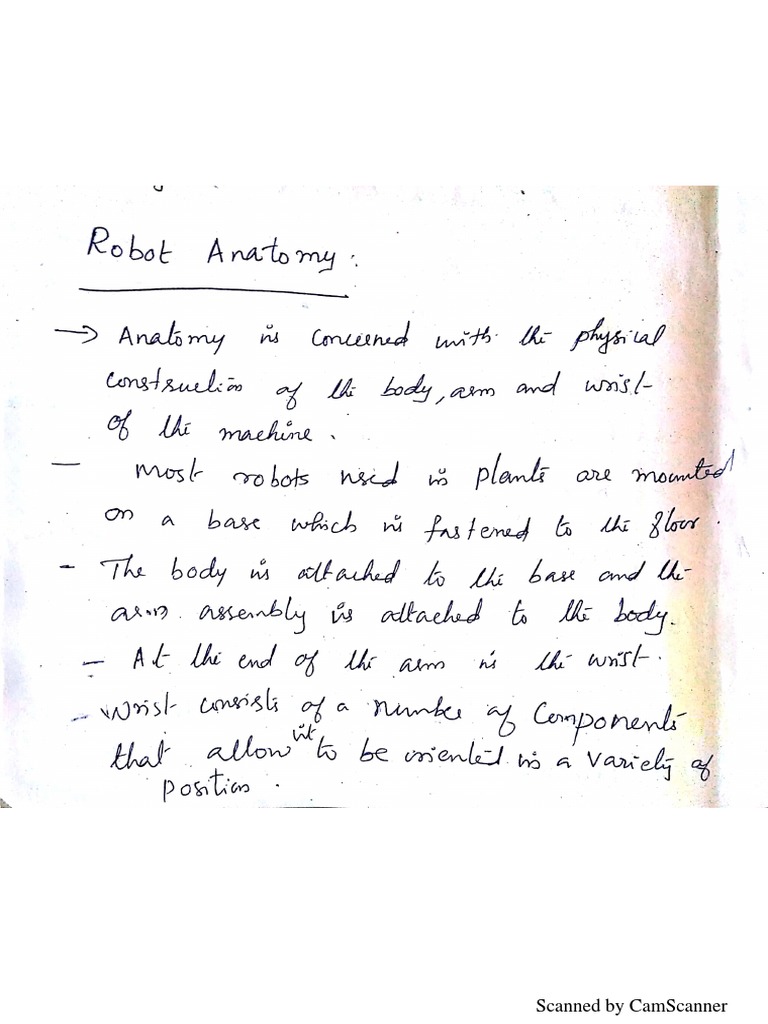 Robot Anatomy :
→ Anatomy is concerned with the physical
construction of the body, arm and wrist
of the machine.
— Most robots used in plants are mounted
on a base which is fastened to the floor.
- The body is attached to the base and the
arm assembly is attached to the body.
- At the end of the arm is the wrist.
- Wrist consists of a number of components
that allow it to be oriented in a variety of
position.
Scanned by CamScanner